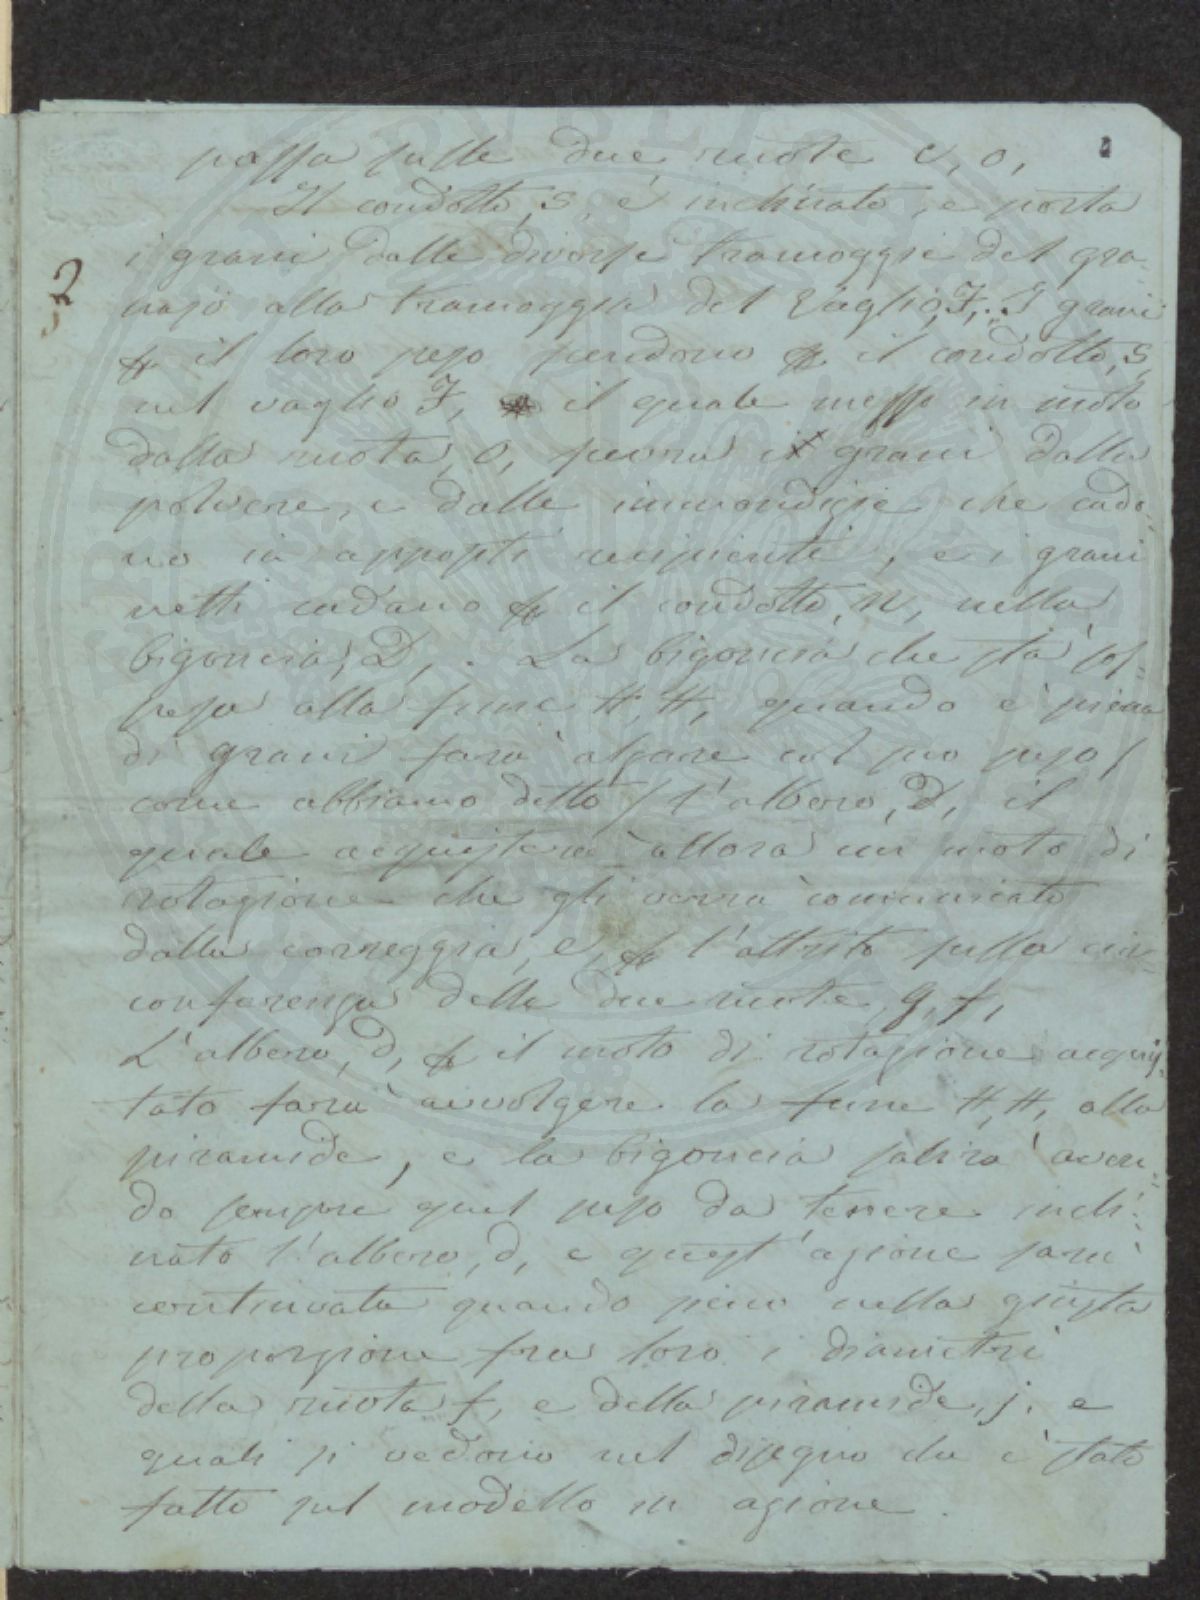 passa sulle due ruote c, o,
Il condotto, s, è inclinato, e porta
i grani dalle diverse tramoggie del gra-
najo alla tramoggia del vaglio, F,.. I grani
per il loro peso scendono per il condotto, s,
nel vaglio F, il quale messo in moto
dalla ruota, o, scevra i grani dalla
polvere, e dalle immondizie che cado-
no in appositi recipienti, e i grani
netti cadano per il condotto, n, nella
bigoncia, D,. La bigoncia che stà sos-
pesa alla fune H, H, quando è piena
di grani farà alzare col suo peso /
come abbiamo detto / l'albero, D, il
quale acquisterà allora un moto di
rotazione che gli verrà comunicato
dalla correggia, e, per l'attrito sulla cir-
conferenza delle due ruote, g, f,
L'albero, d, per il moto di rotazione acquis-
tato farà avvolgere la fune H, H, alla
piramide, e la bigoncia salirà aven-
do sempre quel peso da tenere incli-
nato l'albero, d, e quest'azione sarà
continuata quando sieno nella giusta
proporzione fra loro i diametri
della ruota f, e della piramide, j, e
quali si vedono nel disegno che è stato
fatto sul modello in azione.